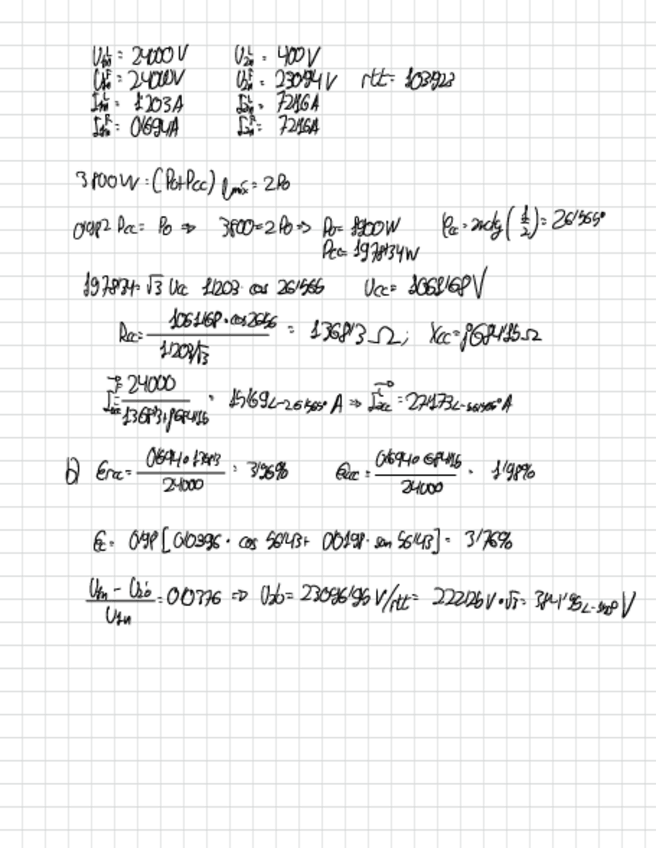 U₁ₙᴸ = 24000 V U₂ₙᴸ = 400 V
U₁ₙᶠ = 24000V U₂ₙᶠ = 230'94 V rtt = 103'923
I₁ₙᴸ = 1'203 A I₂ₙᴸ = 72'16 A
I₁ₙᶠ = 0'694A I₂ₙᶠ = 72'16A
3800W = (Po+Pcc) = 2Po
0'98² Pcc = Po ⇒ 3800 = 2Po ⇒ Po = 1900W φcc = arctg (1/2) = 26'565°
Pcc = 1978'34W
1978'34 = √3 Ucc 1'203 cos 26'565 Ucc = 1061'68 V
Rcc = 1061'68 · cos 26'56 / 1'203/√3 = 1368'3 Ω; Xcc = j684'15 Ω
= 24000 / 1368'3 + j684'15 = 15'69∠-26'565° A ⇒ = 27'173∠-56'565° A
b) Ercc = 0'694 · 1368'3 / 24000 = 3'96% = 0'694 · 684'15 / 24000 = 1'98%
Ec = 0'98 [0'0396 · cos 56'43 + 0'0198 · sen 56'43] = 3'76%
U₁ₙ - U₂₀' / U₁ₙ = 0'0376 ⇒ U₂b = 23096'96 V / rtt = 222'26 V · √3 = 384'95 V